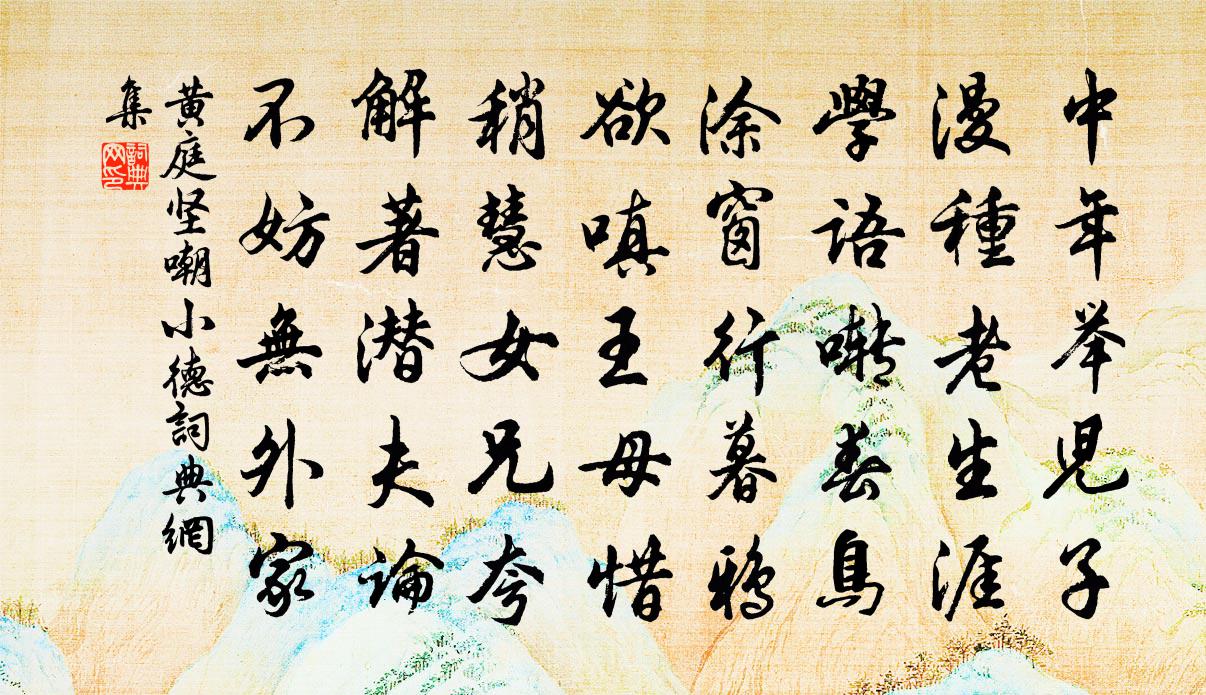 中年举兒子
漫種老生涯
學語囀春鳥
涂窗行暮鴉
欲嗔王母惜
稍慧女兄夸
解著潜夫論
不妨無外家
黄庭坚嘲小德詞典網
集
詞典网印